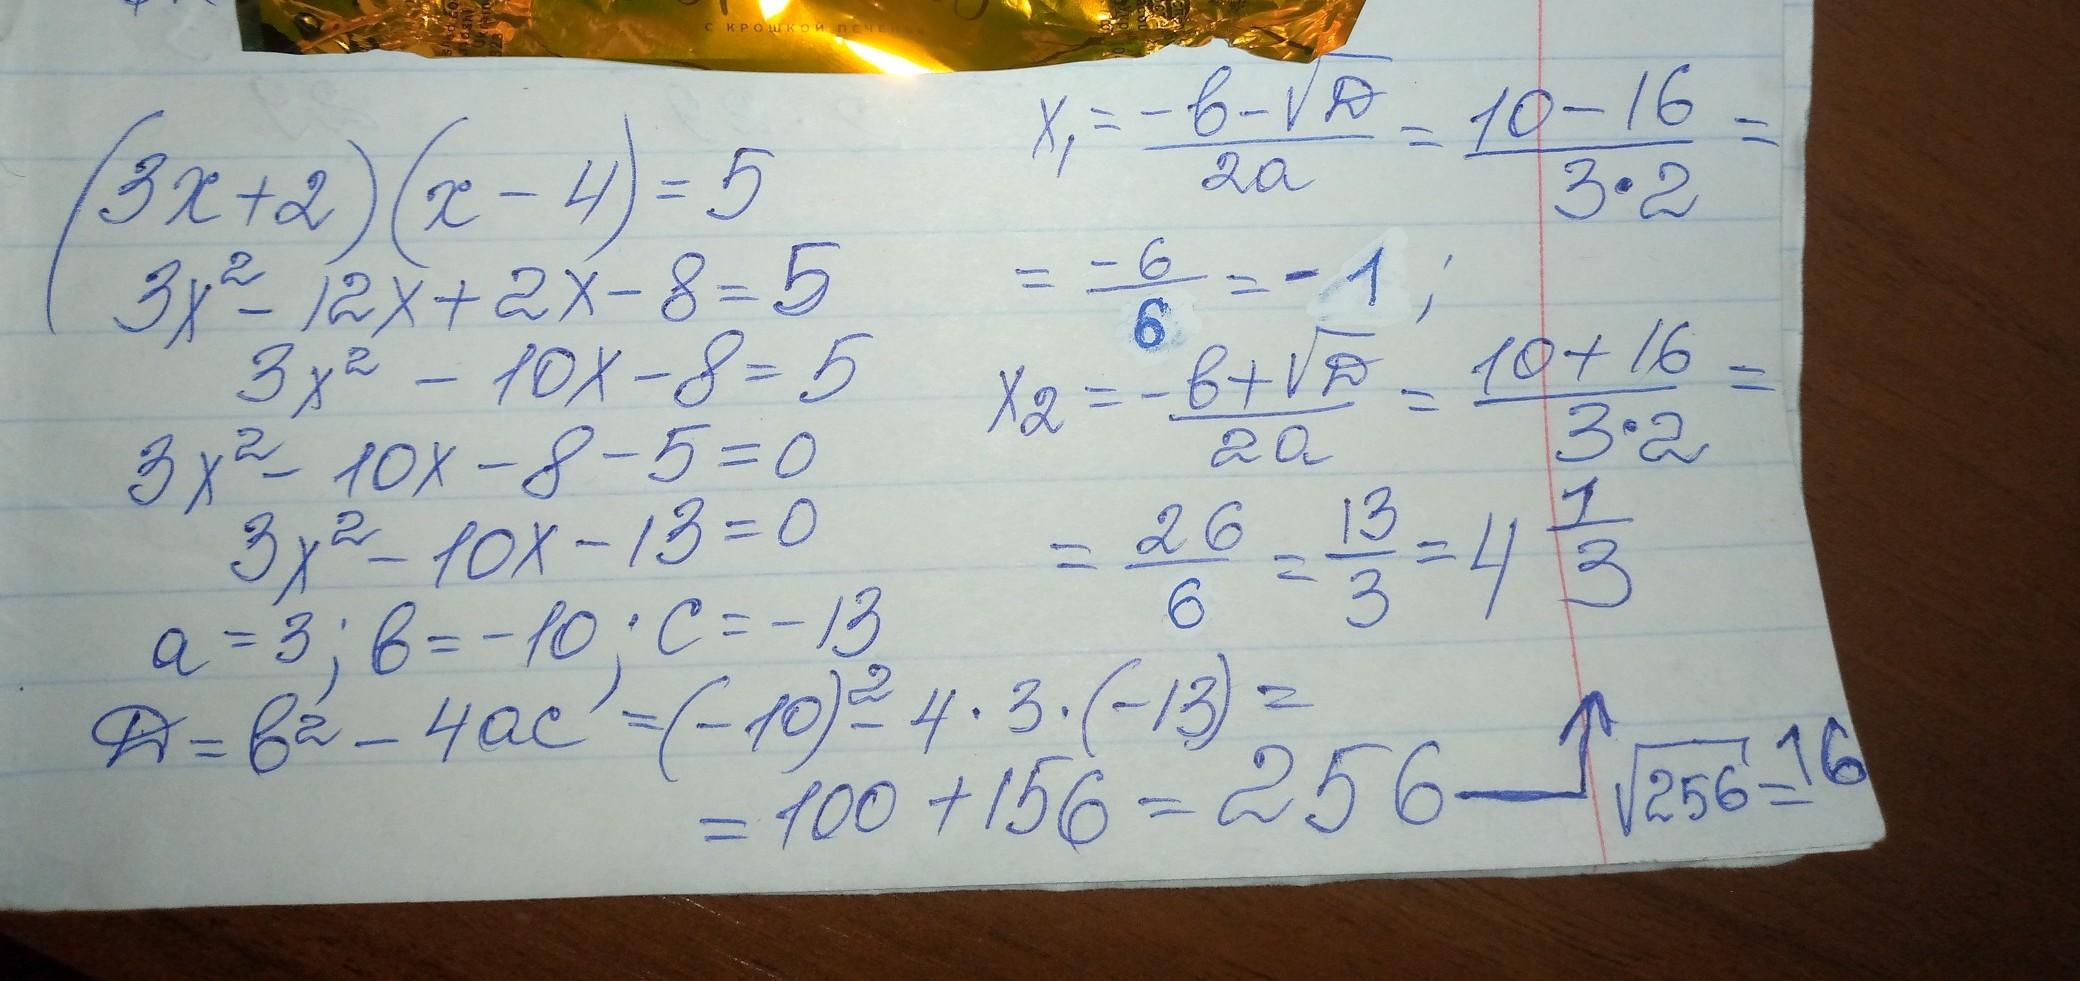 с крошкой печенья
(3x+2)(x-4)=5
3x²-12x+2x-8=5
3x²-10x-8=5
3x²-10x-8-5=0
3x²-10x-13=0
a=3; b=-10; c=-13
D=b²-4ac=(-10)²-4·3·(-13)=
=100+156=256 √256=16
x₁=(-b-√D)/2a=(10-16)/(3·2)=
=-6/6=-1;
x₂=(-b+√D)/2a=(10+16)/(3·2)=
=26/6=13/3=4 1/3